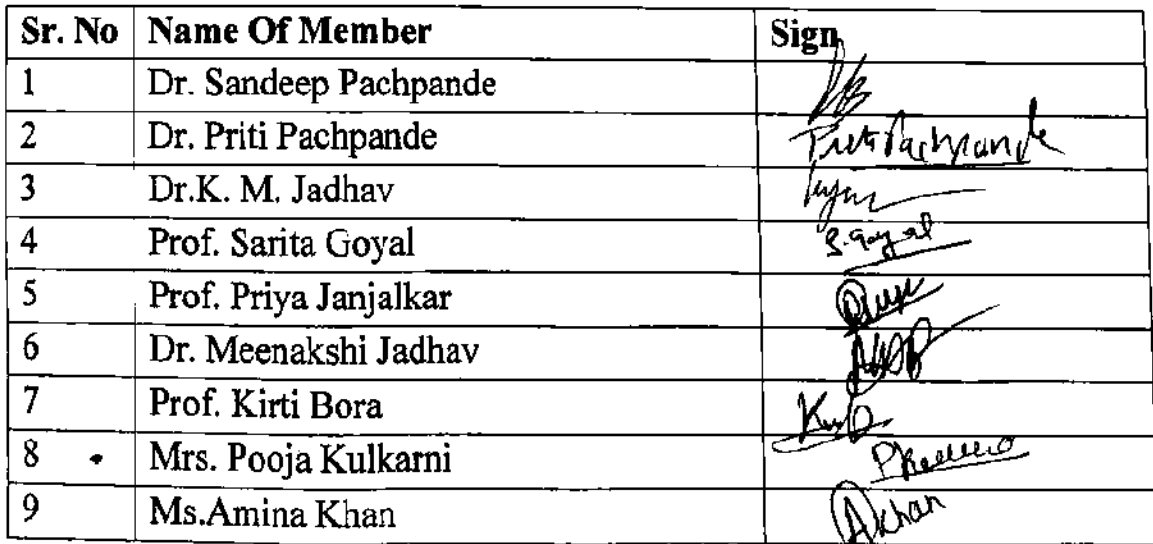 Sr. No Name Of Member Sign
1 Dr. Sandeep Pachpande
2 Dr. Priti Pachpande Priti Pachpande
3 Dr.K. M. Jadhav
4 Prof. Sarita Goyal S. Goyal
5 Prof. Priya Janjalkar
6 Dr. Meenakshi Jadhav
7 Prof. Kirti Bora
8 Mrs. Pooja Kulkarni
9 Ms.Amina Khan AKhan